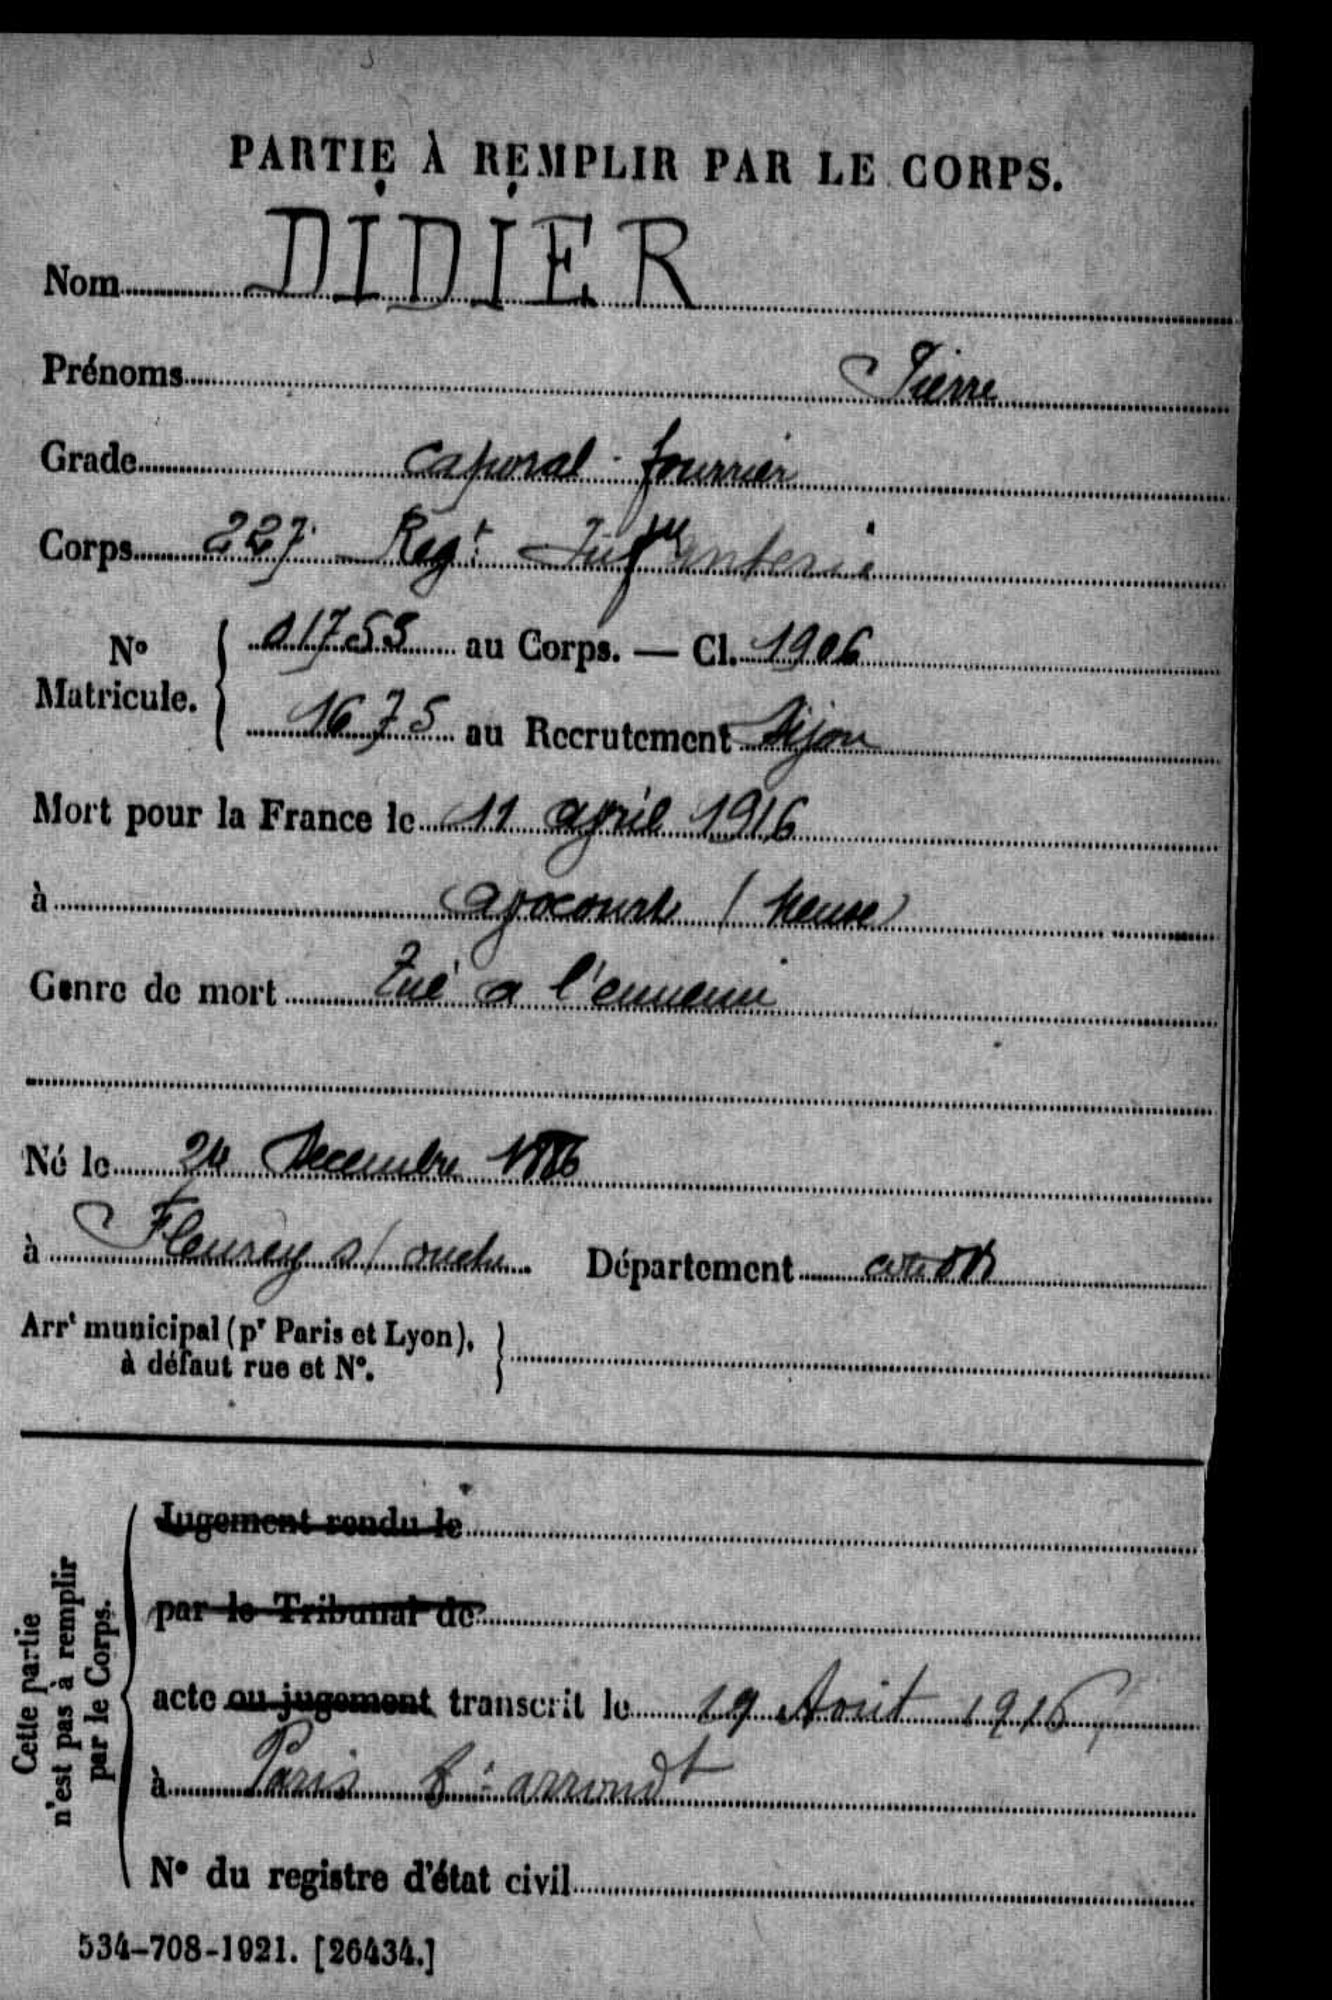 PARTIE À REMPLIR PAR LE CORPS.
Nom DIDIER
Prénoms Pierre
Grade caporal-fourrier
Corps 227 Regt Infanterie
No Matricule. { 01753 au Corps. — Cl. 1906
1675 au Recrutement Dijon
Mort pour la France le 11 april 1916
à avocourt (Meuse)
Genre de mort Tué a l'ennemi
Né le 24 Decembre 1886
à Fleurey s/ ouche Département
Arrt municipal (pr Paris et Lyon), à défaut rue et No. }
Cette partie n'est pas à remplir par le Corps.
Jugement rendu le
par le Tribunal de
acte ou jugement transcrit le 19 Août 1916
à Paris arrondt
No du registre d'état civil
534-708-1921. [26434.]